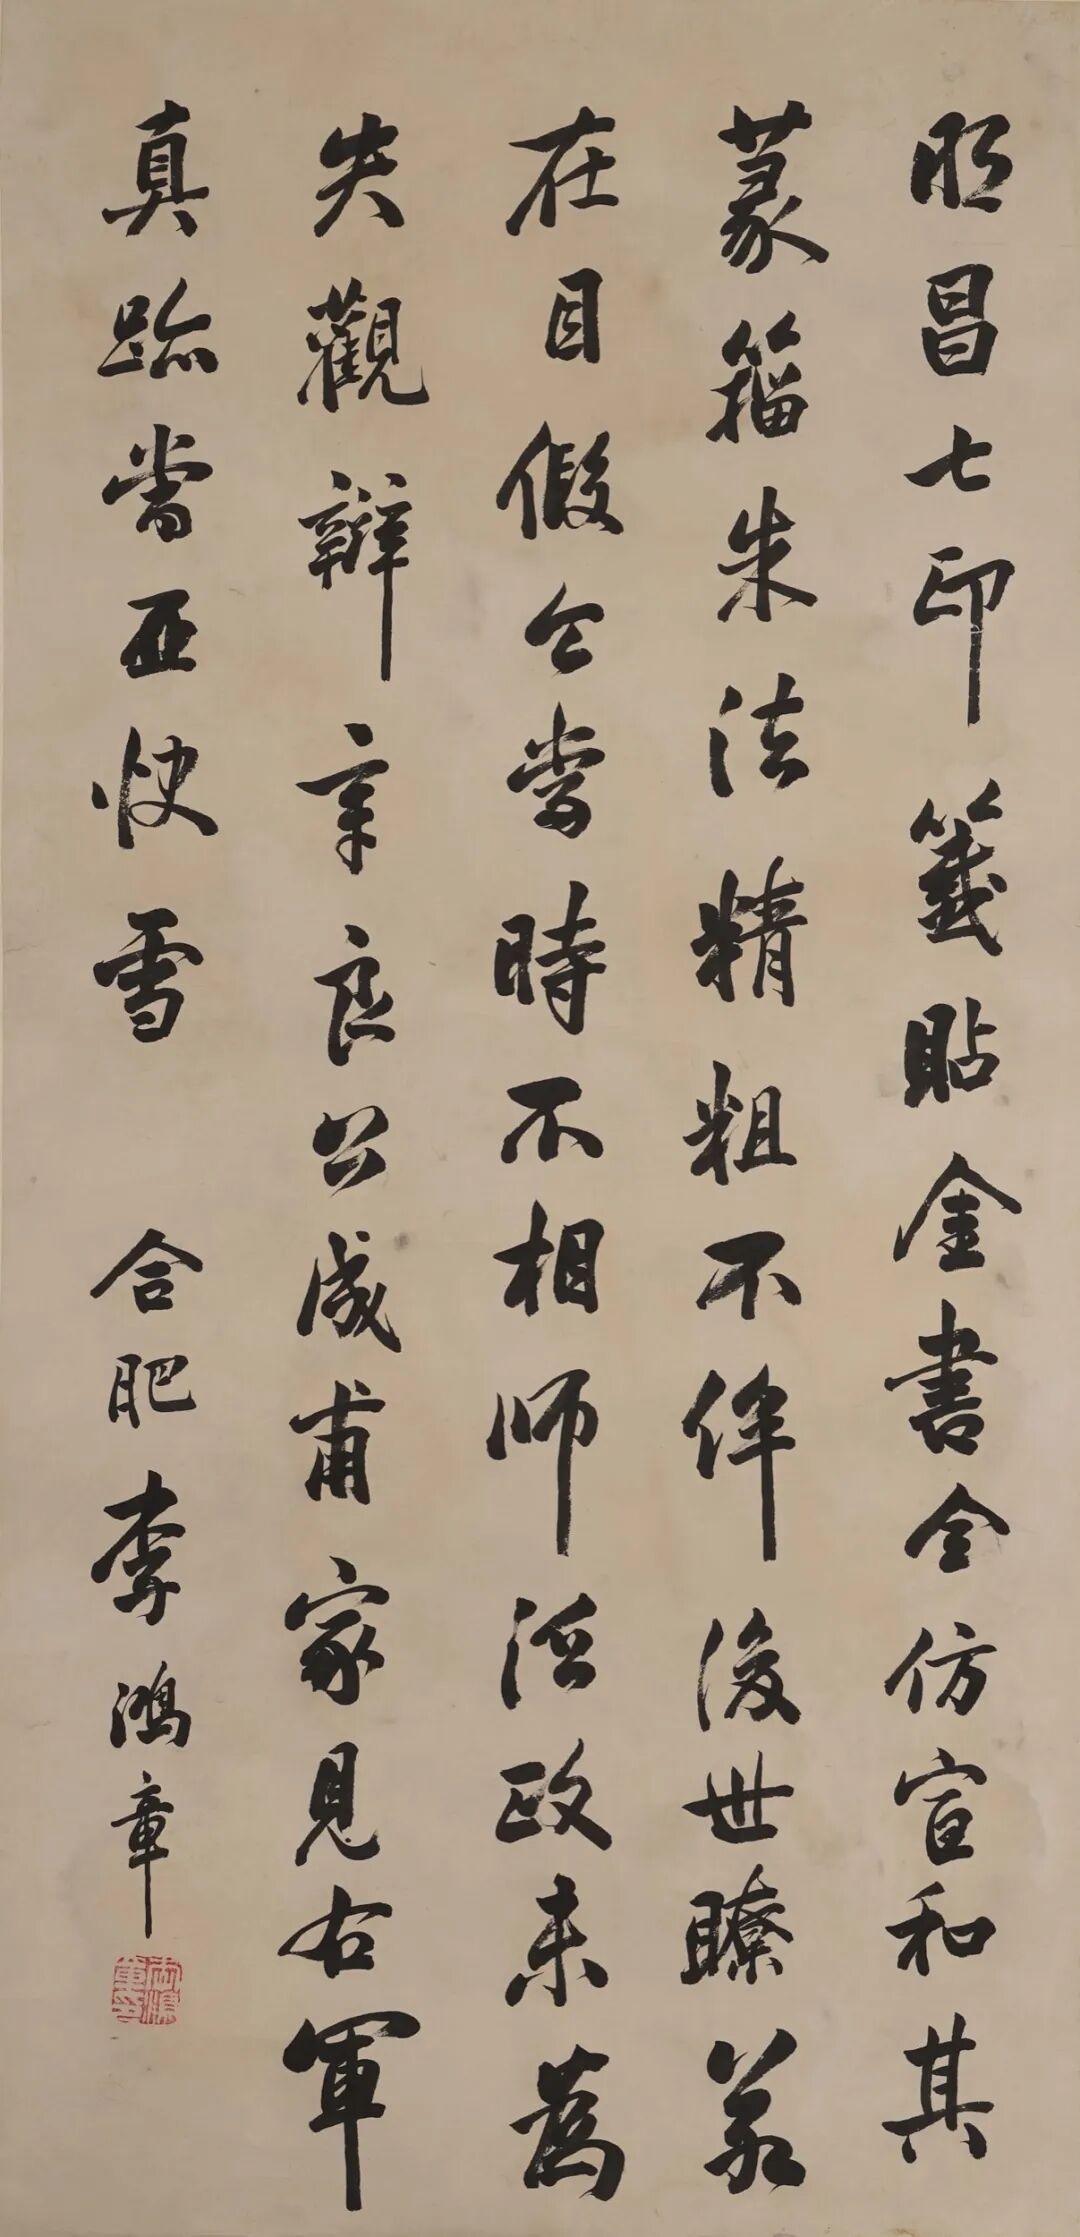 明昌七印籖貼金書全仿宣和其
篆籀朱法精粗不侔後世瞭若
在目假令當時不相師政未為
失觀辯章良公成甫家見右軍
真跡當亞快雪
合肥李鴻章